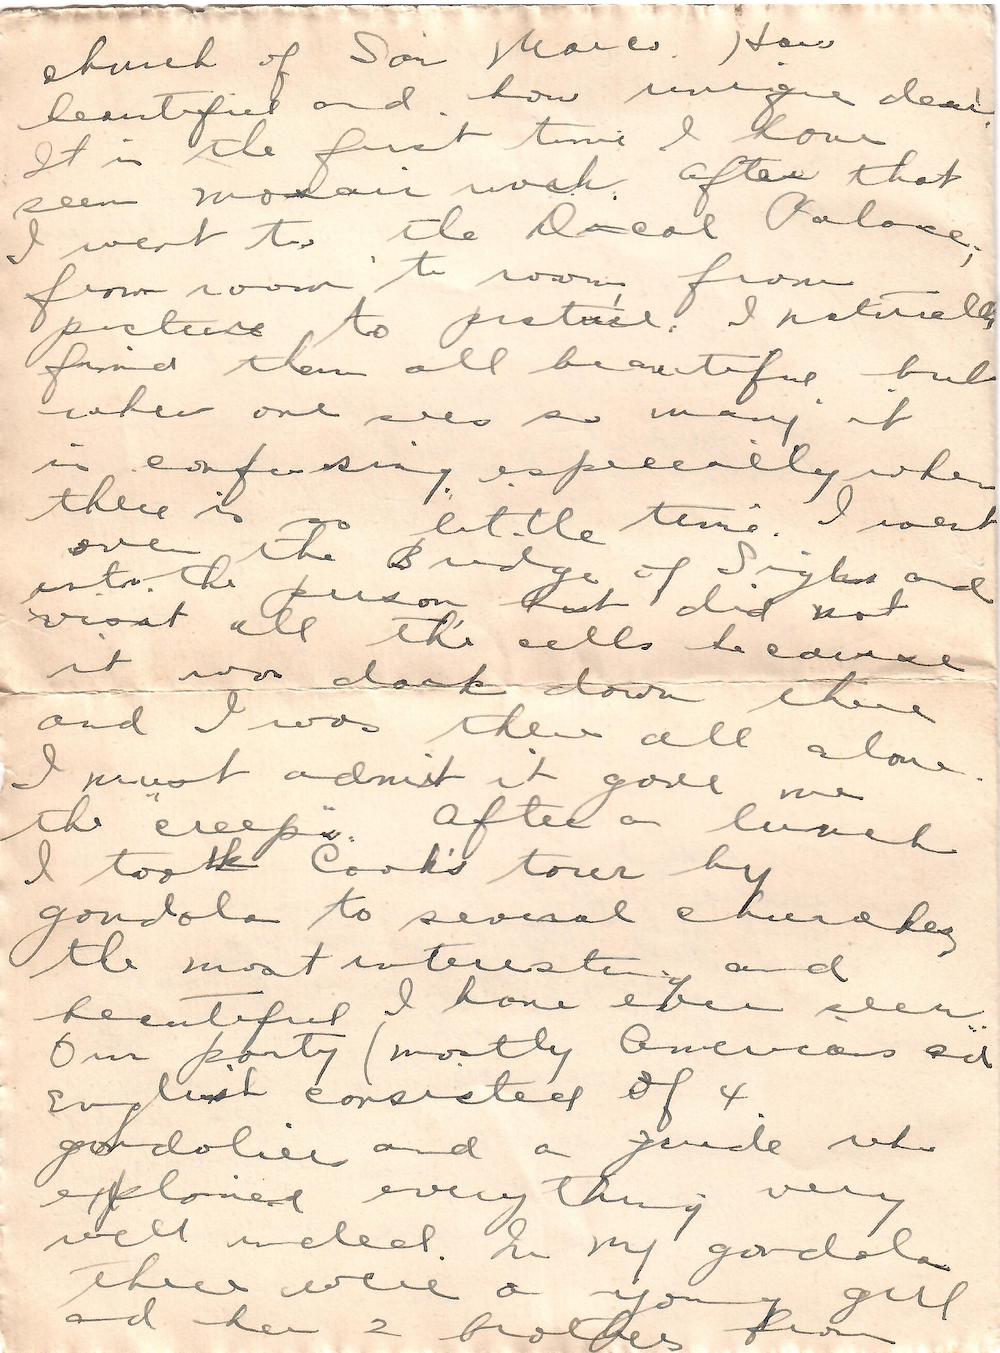 church of San Marco. How
beautiful and how unique dear.
It is the first time I have
seen mosaic work. After that
I went to the Ducal Palace,
from room to room, from
picture to picture. I naturally
find them all beautiful but
when one sees so many it
is confusing, especially when
there is so little time. I went
over the Bridge of Sighs and
into the prison but did not
visit all the cells because
it was dark down there
and I was there all alone.
I must admit it gave me
the "creeps". After a lunch
I took Cook's tour by
gondola to several churches,
the most interesting and
beautiful I have ever seen.
Our party (mostly Americans ad
English consisted of 4
gondolier and a guide who
explained everything very
well indeed. In my gondola
there were a young girl
ad her 2 brothers from